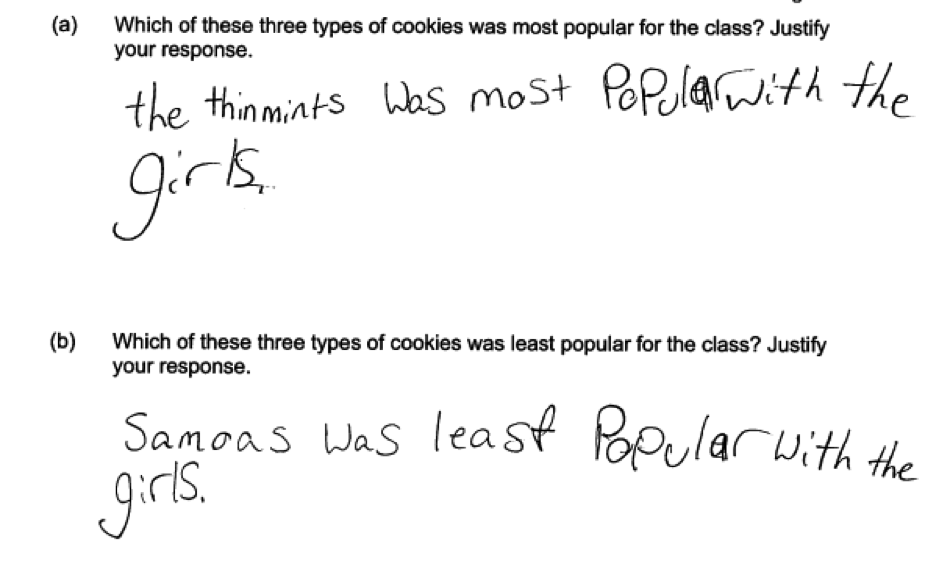 (a) Which of these three types of cookies was most popular for the class? Justify
your response.
the thinmints Was most PoPular with the
girls.
(b) Which of these three types of cookies was least popular for the class? Justify
your response.
Samoas was least Popular with the
girls.